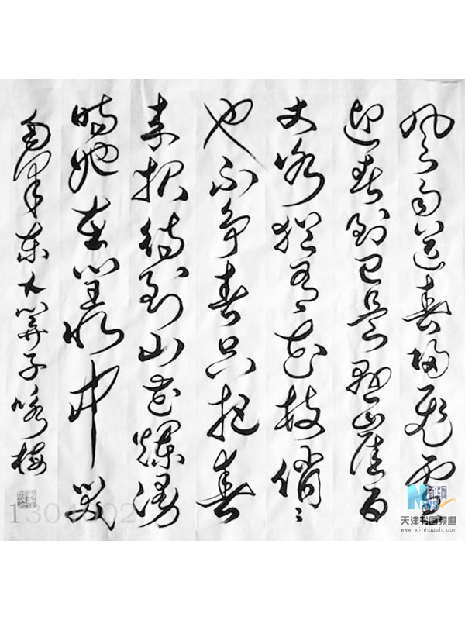 风雨送春归飞雪
迎春到已是悬崖百
丈冰犹有花枝俏〻
也不争春只把春
来报待到山花烂漫
时她在丛中笑
毛泽东卜算子咏梅
天津书画联盟